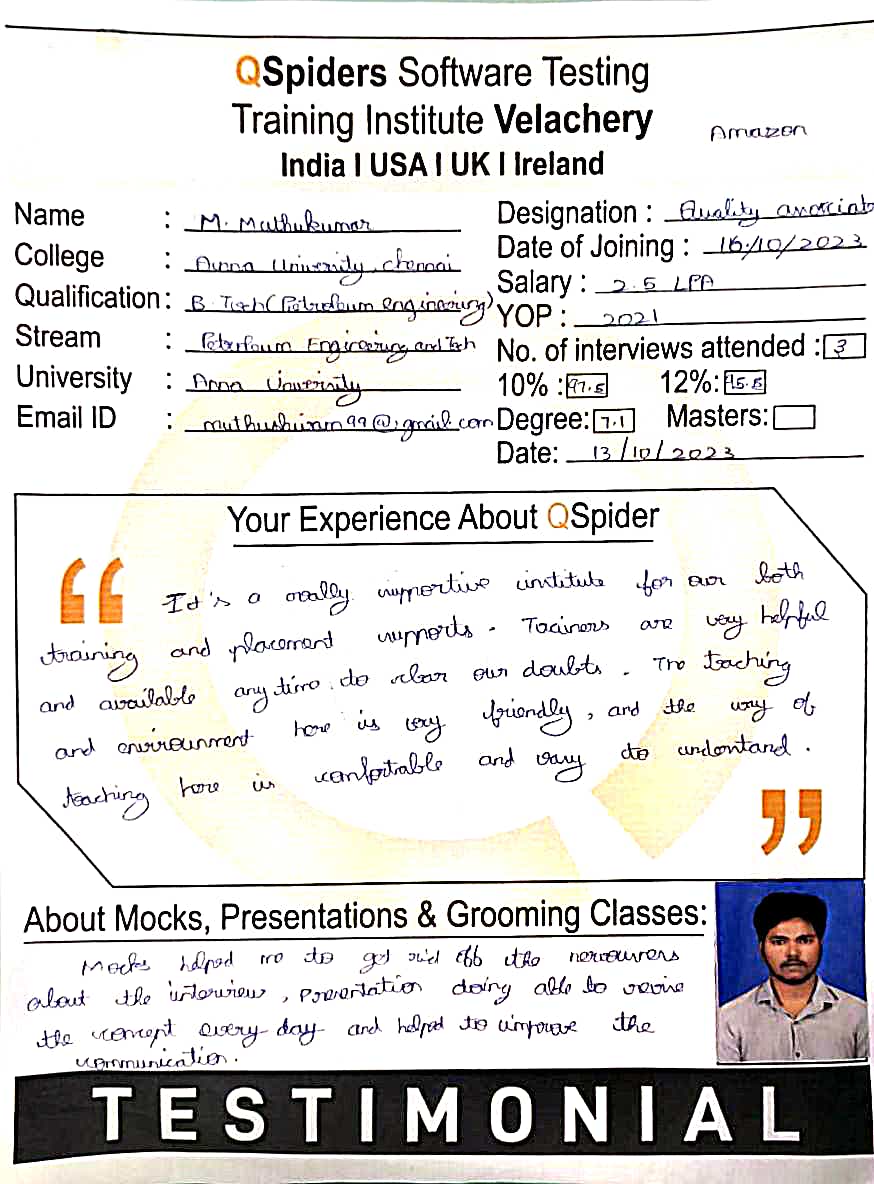 QSpiders Software Testing
Training Institute Velachery
Amazon
India I USA I UK I Ireland
Name : M. Muthukumar
College : Anna University, chennai
Qualification : B.Tech (Petroleum engineering)
Stream : Petroleum Engineering and Tech
University : Anna University
Email ID : muthushivam99@gmail.com
Designation : Quality associate
Date of Joining : 16/10/2023
Salary : 2.5 LPA
YOP : 2021
No. of interviews attended : 3
10% : 97.5 12%:
Degree: 7.1 Masters:
Date: 13/10/2023
Your Experience About QSpider
It's a really supportive institute for our both
training and placement supports. Trainers are very helpful
and available any time to clear our doubts. The teaching
and environment here is very friendly, and the way of
teaching here is comfortable and easy to understand.
About Mocks, Presentations & Grooming Classes:
Mocks helped me to get rid off the
about the interview, presentation doing able to revise
the concept every day and helped to improve the
communication.
TESTIMONIAL